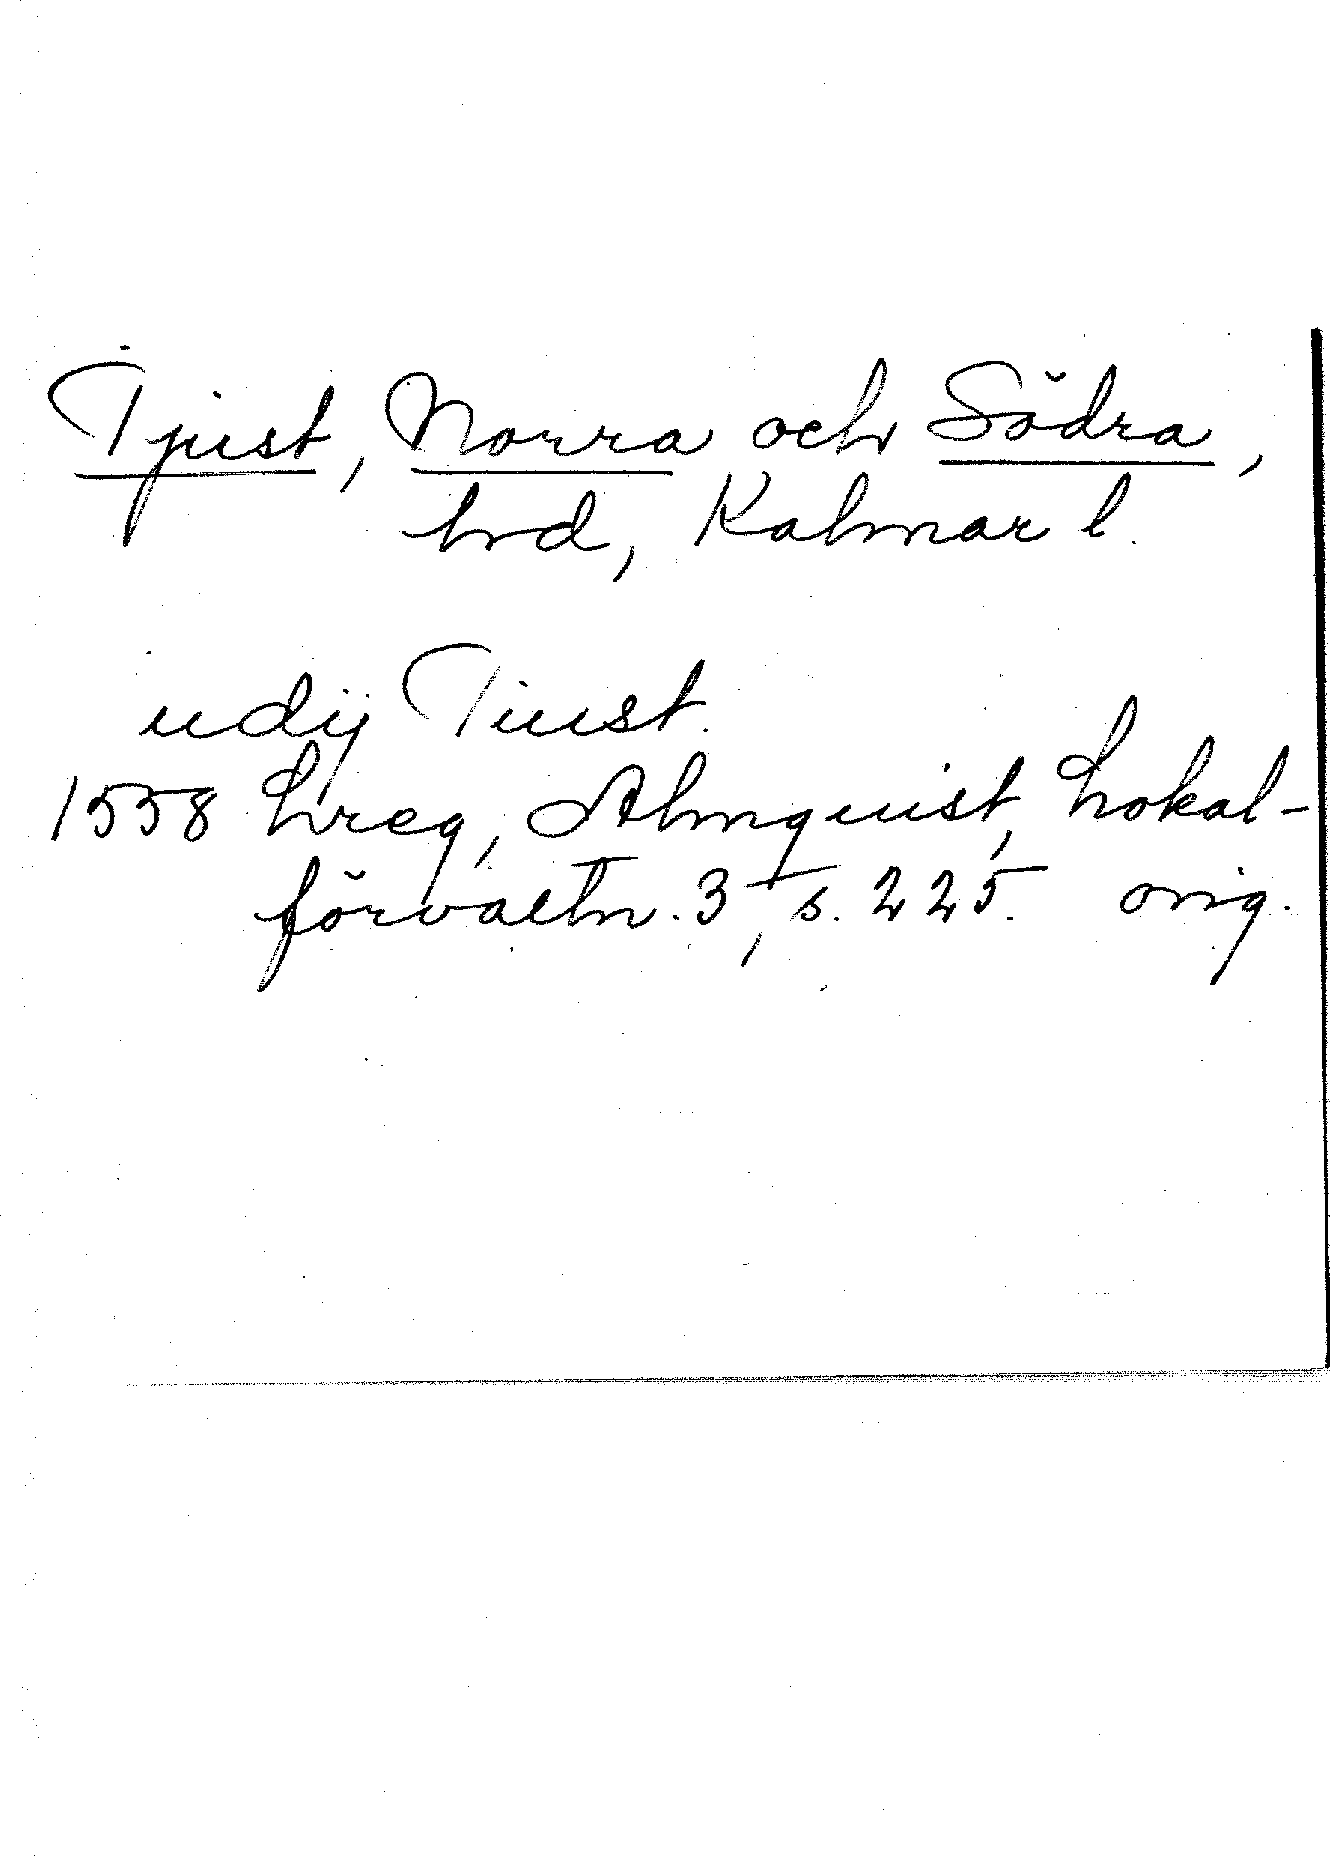 Tjust, Norra och Södra,
hrd, Kalmar l.
udij Tiust.
1558 Lreg, Almquist, Lokal-
förvaltn. 3, s. 225. orig.